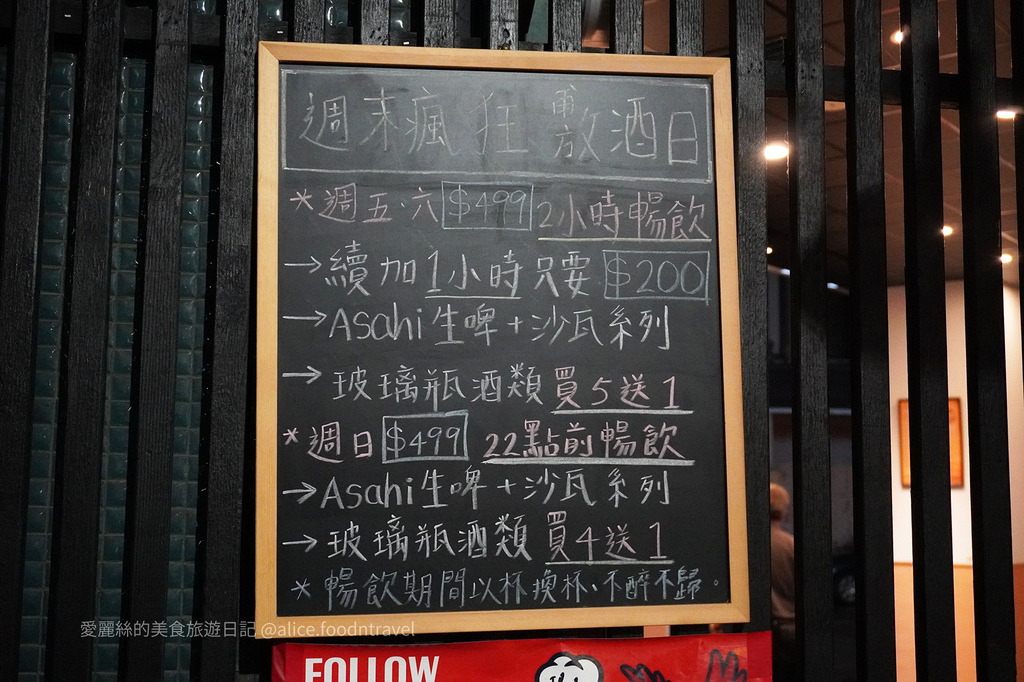 週末瘋狂敷酒日
*週五、六 $499 2小時暢飲
→續加1小時只要 $200
→Asahi生啤+沙瓦系列
→玻璃瓶酒類買5送1
*週日 $499 22點前暢飲
→Asahi生啤+沙瓦系列
→玻璃瓶酒類買4送1
*暢飲期間以杯換杯、不醉不歸。
愛麗絲的美食旅遊日記 @alice.foodntravel
FOLLOW